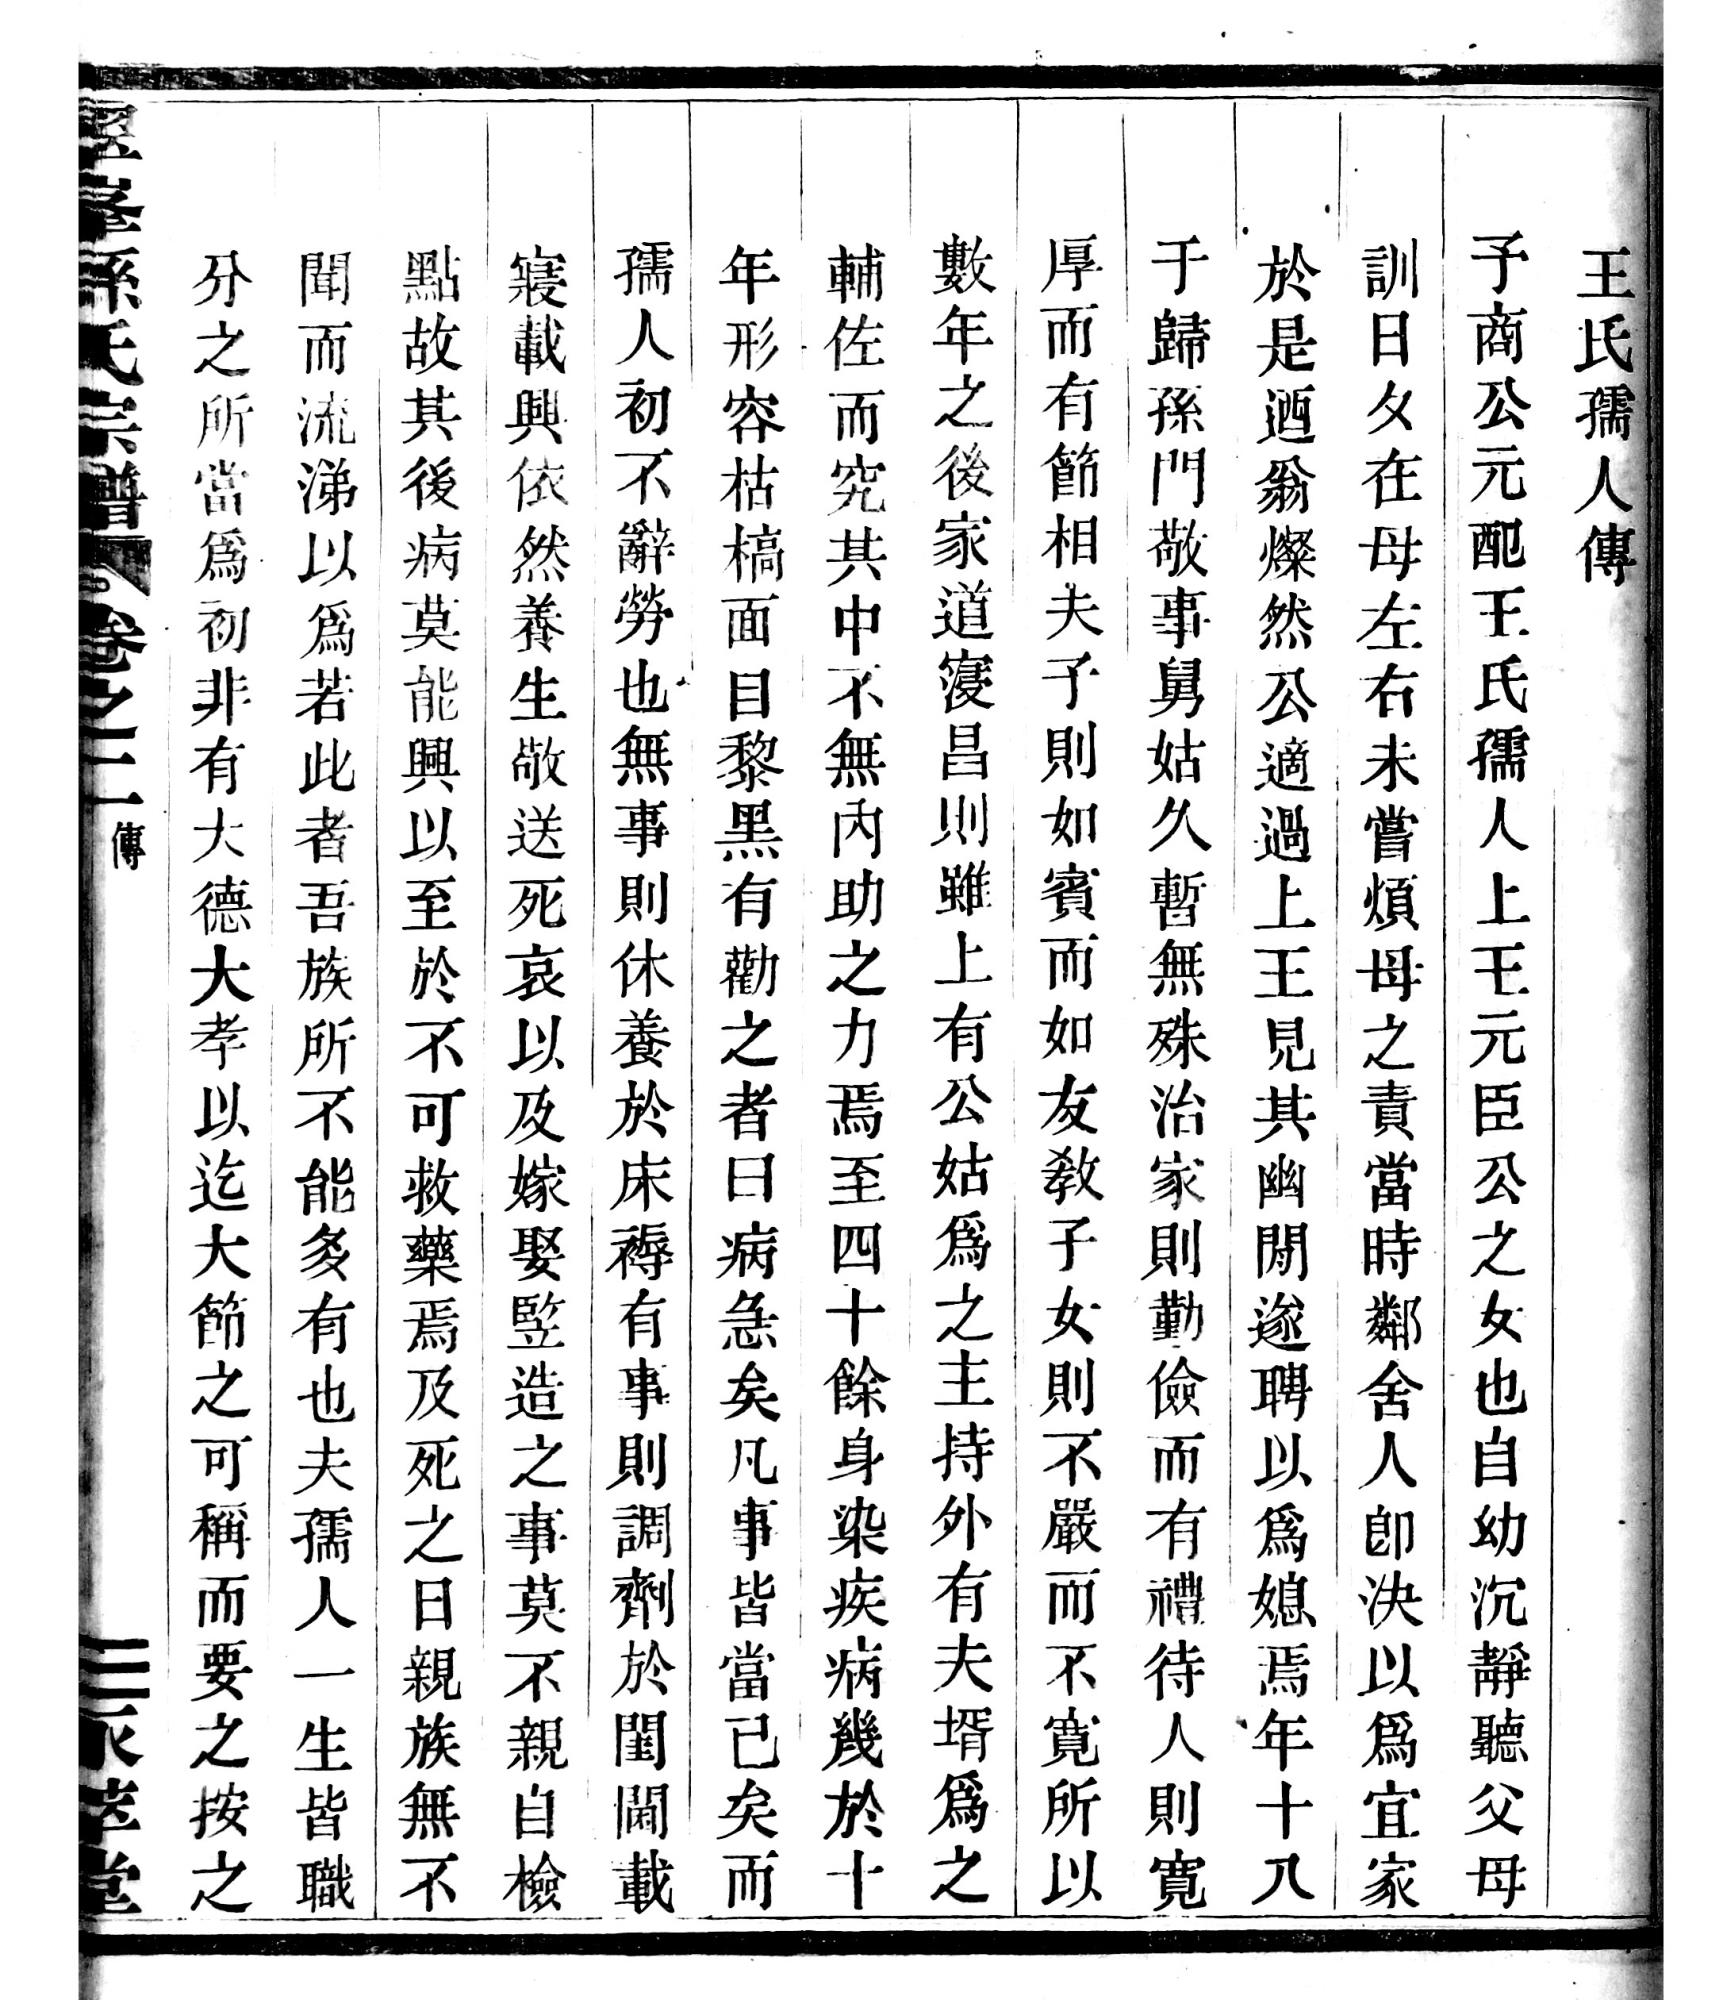 王氏孺人傳
予商公元配王氏孺人上王元臣公之女也自幼沉靜聽父母
訓日夕在母左右未嘗煩母之責當時鄰舍人卽決以爲宜家
於是迺翁燦然公適過上王見其幽閒遂聘以爲媳焉年十八
于歸孫門敬事舅姑久暫無殊治家則勤儉而有禮待人則寬
厚而有節相夫子則如賓而如友敎子女則不嚴而不寬所以
數年之後家道寖昌則雖上有公姑爲之主持外有夫壻爲之
輔佐而究其中不無內助之力焉至四十餘身染疾病幾於十
年形容枯槁面目黎黑有勸之者曰病急矣凡事皆當已矣而
孺人初不辭勞也無事則休養於床褥有事則調劑於閨閫載
寢載興依然養生敬送死哀以及嫁娶竪造之事莫不親自檢
點故其後病莫能興以至於不可救藥焉及死之日親族無不
聞而流涕以爲若此者吾族所不能多有也夫孺人一生皆職
分之所當爲初非有大德大孝以迄大節之可稱而要之按之
峯孫氏宗譜 卷之二 傳 二 永萃堂